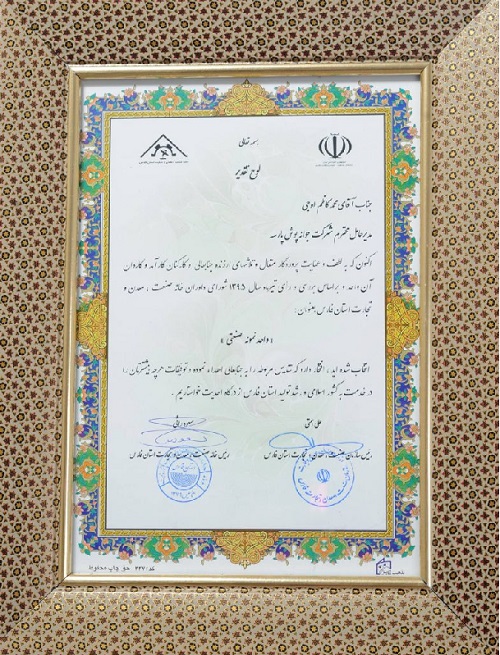 بسمه تعالی
لوح تقدیر
جناب آقای محمد کاظم اوجی
مدیرعامل محترم شرکت جوانه پوش پارسه
اکنون که به لطف و عنایت پروردگار متعال و تلاشهای ارزنده جنابعالی و کارکنان کارآمد و کاردان
آن واحد و براساس بررسی و رأی تیرماه سال ۱۳۹۵ شورای داوران خانه صنعت، معدن و
تجارت استان فارس بعنوان:
«واحد نمونه صنعتی»
انتخاب شده اید، افتخار دارد که تندیس مربوطه را به جنابعالی اهداء نموده و توفیقات هرچه بیشترتان را
در خدمت به کشور اسلامی و رشد تولید استان فارس از درگاه احدیت خواستاریم.
علی همتی
رئیس سازمان صنعت، معدن و تجارت استان فارس
رئیس خانه صنعت، معدن و تجارت استان فارس
کد: ۲۲۷ حق چاپ محفوظ